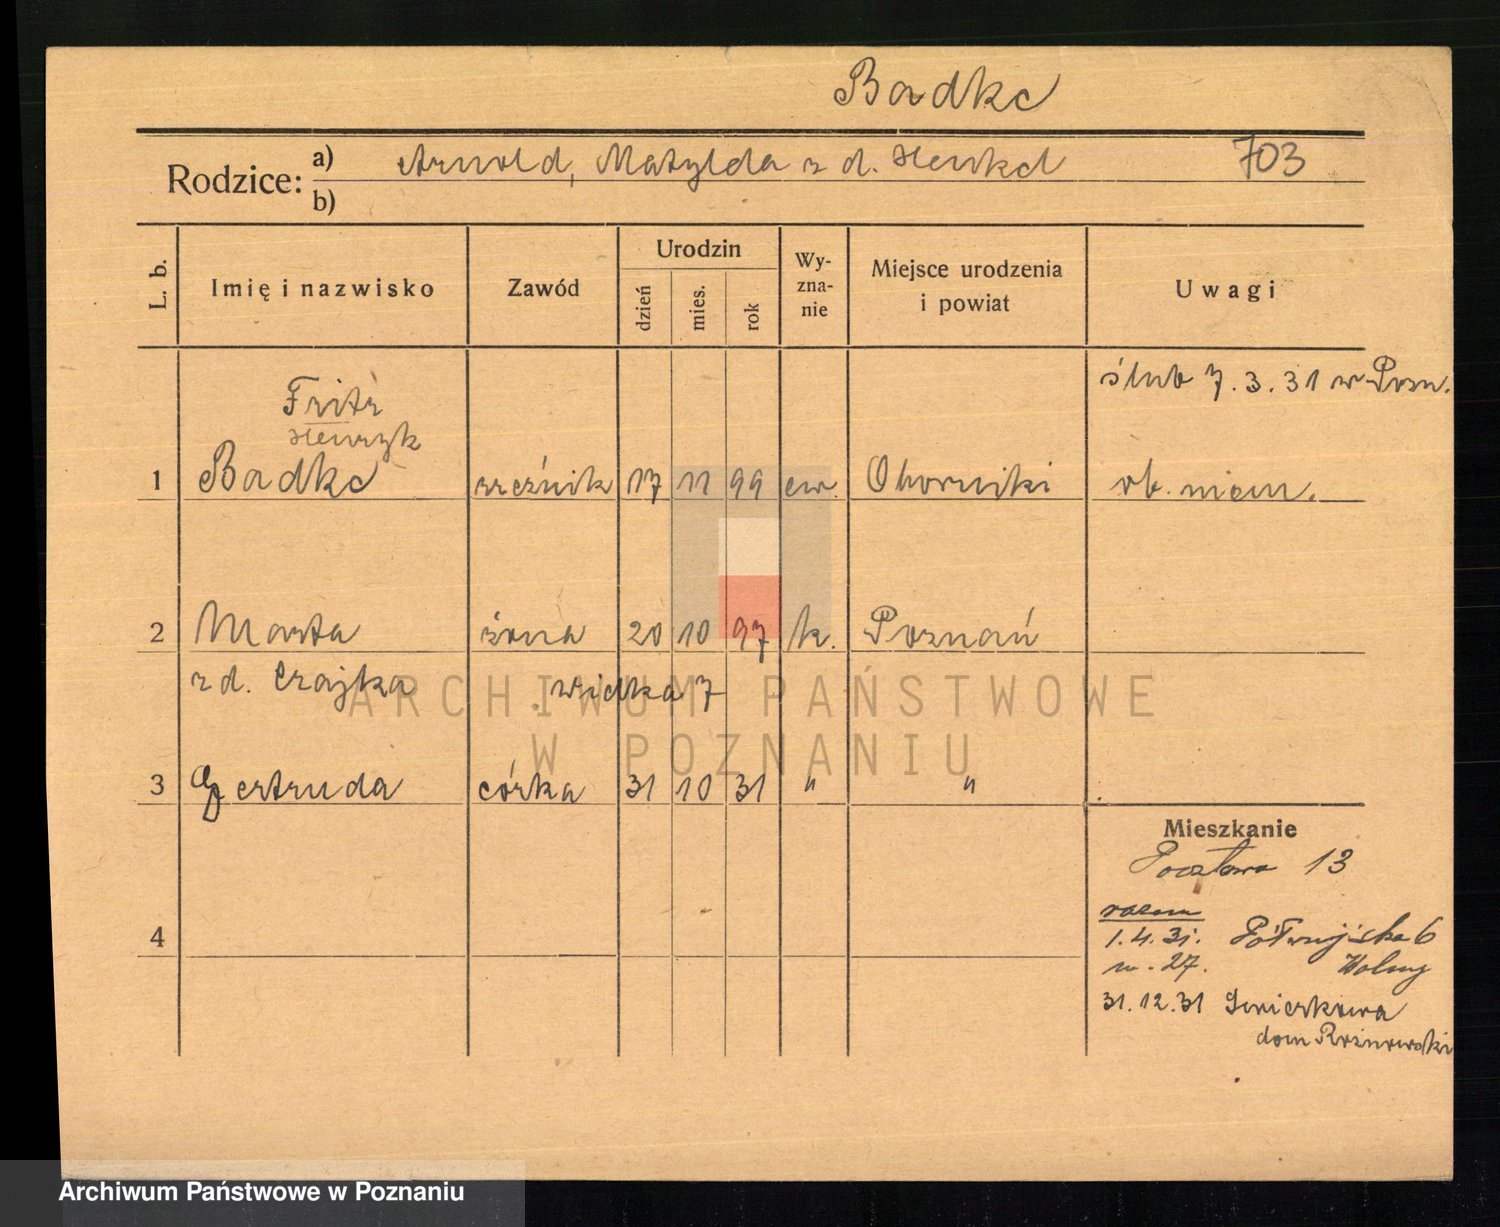 Badke
Rodzice: a) Arnold, Matylda z d. Henkel 703
b)
L. b. Imię i nazwisko Zawód Urodzin dzień mies. rok Wy-zna-nie Miejsce urodzenia i powiat Uwagi
ślub 7.3.31 w Pozn.
Fritz
Henryk
1 Badke rzeźnik 17 11 99 ew. Oborniki ob. niem.
2 Marta żona 20 10 97 k. Poznań
z d. Czajka Wielka 7
3 Gertruda córka 31 10 31 " "
Mieszkanie
Pocztowa 13
razem
4
1.4.31. Półwiejska 6
m. 27.
31.12.31
dom
ARCHIWUM PAŃSTWOWE
W POZNANIU
Archiwum Państwowe w Poznaniu